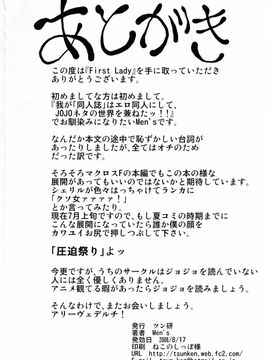 あとがき
この度は『First Lady』を手に取っていただき
ありがとうございます。
初めましてな方は初めまして。
『我が「同人誌」はエロ同人にして、
JOJOネタの世界を兼ねたッ！！』
でお馴染みになりたいMen'sです。
なんだか本文の途中で恥ずかしい台詞が
あったりしましたが、全てはオチのため
だった訳です。
そろそろマクロスFの本編でもこの本の様な
展開があってもいいのではないかと期待しています。
シェリルが色々はっちゃけてランカに
「クソ女ァァァァ！」
とか言ってみたり。
現在7月上旬ですので、もし夏コミの時期までに
こんな展開になっていたら誰か僕の顔を
カワユイお尻で押しつぶして下さい。
「圧迫祭り」よッ
今更ですが、うちのサークルはジョジョを読んでいない
人には全く優しくありません。
アニメ観てる暇があったらジョジョを読みましょう。
そんなわけで、またお会いしましょう。
アリーヴェデルチ！
発行 ツン研
著者 Men's
発効日 2008/8/17
印刷 ねこのしっぽ様
URL http://tsunken.web.fc2.com/